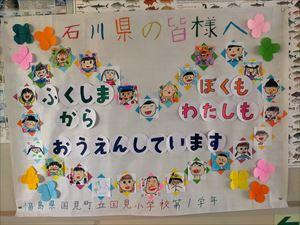 石川県の皆様へ
ふくしま
から
ぼくも
わたしも
おうえんしています
福島県国見町立国見小学校第1学年